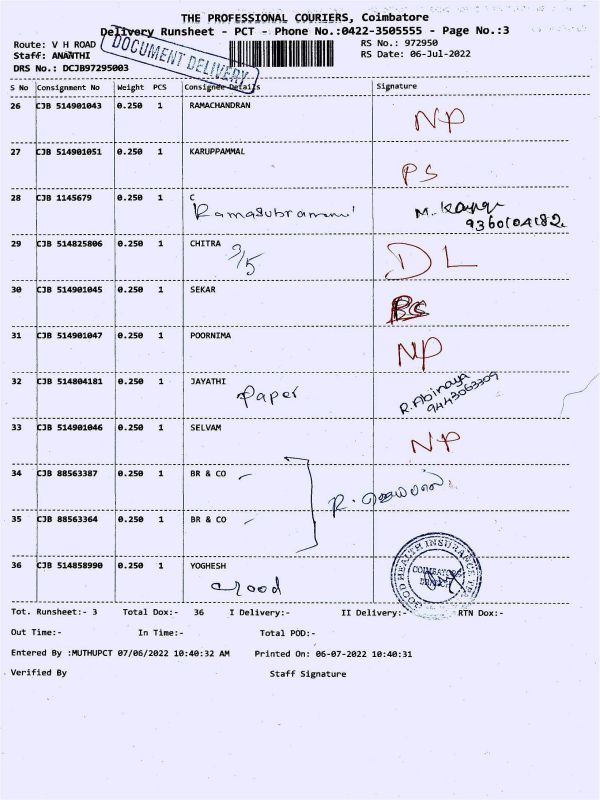 THE PROFESSIONAL COURIERS, Coimbatore
Delivery Runsheet - PCT - Phone No.:0422-3505555 - Page No.:3
Route: V H ROAD
RS No.: 972950
Staff: ANANTHI
RS Date: 06-Jul-2022
DRS No.: DCJB97295003
DOCUMENT DELIVERY
S No Consignment No Weight PCS Consignee Details Signature
26 CJB 514901043 0.250 1 RAMACHANDRAN NP
27 CJB 514901051 0.250 1 KARUPPAMMAL PS
28 CJB 1145679 0.250 1 C
Ramasubramani M.
9360104182
29 CJB 514825806 0.250 1 CHITRA DL
9/5
30 CJB 514901045 0.250 1 SEKAR
31 CJB 514901047 0.250 1 POORNIMA NP
32 CJB 514804181 0.250 1 JAYATHI
Paper R. Abinaya
9443063309
33 CJB 514901046 0.250 1 SELVAM NP
34 CJB 88563387 0.250 1 BR & CO
R.
35 CJB 88563364 0.250 1 BR & CO
36 CJB 514858990 0.250 1 YOGHESH
GOOD HEALTH INSURANCE TPA
COIMBATORE
Tot. Runsheet:- 3 Total Dox:- 36 I Delivery:- II Delivery:- RTN Dox:-
Out Time:- In Time:- Total POD:-
Entered By :MUTHUPCT 07/06/2022 10:40:32 AM Printed On: 06-07-2022 10:40:31
Verified By Staff Signature